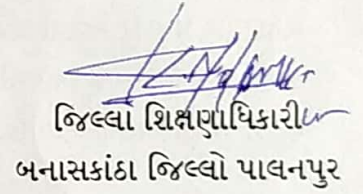 જિલ્લા શિક્ષણાધિકારી
બનાસકાંઠા જિલ્લો પાલનપુર